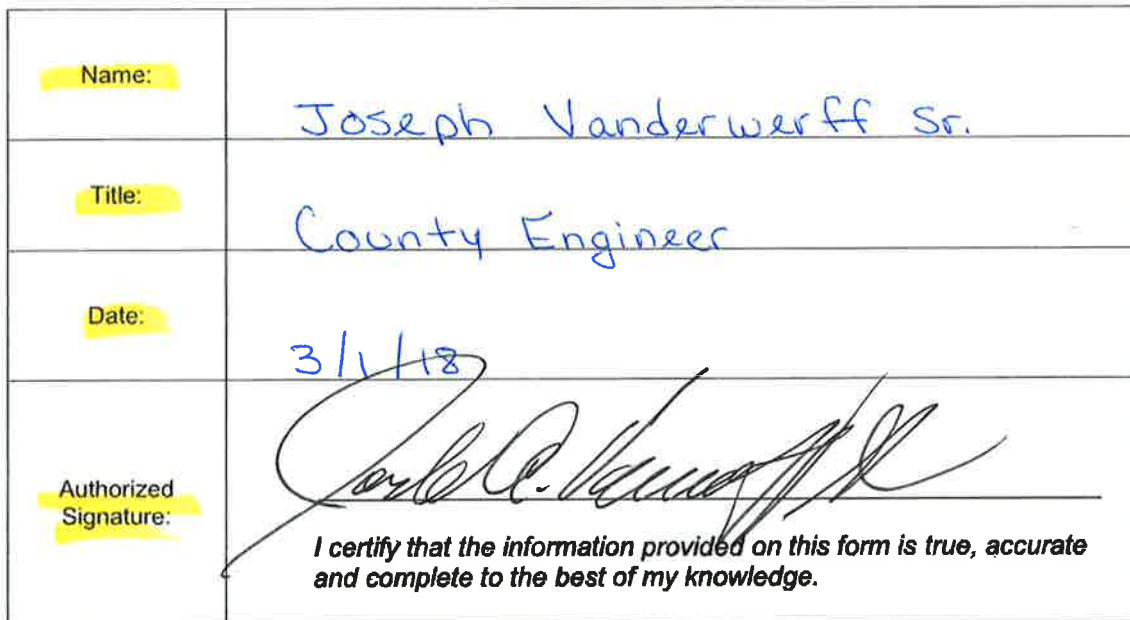 Name:
Joseph Vanderwerff Sr.
Title:
County Engineer
Date:
3/1/18
Authorized
Signature:
I certify that the information provided on this form is true, accurate
and complete to the best of my knowledge.